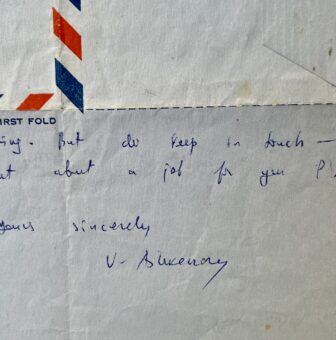 FIRST FOLD
ing. But do keep in touch —
ut about a job for you P.
yours sincerely
V.